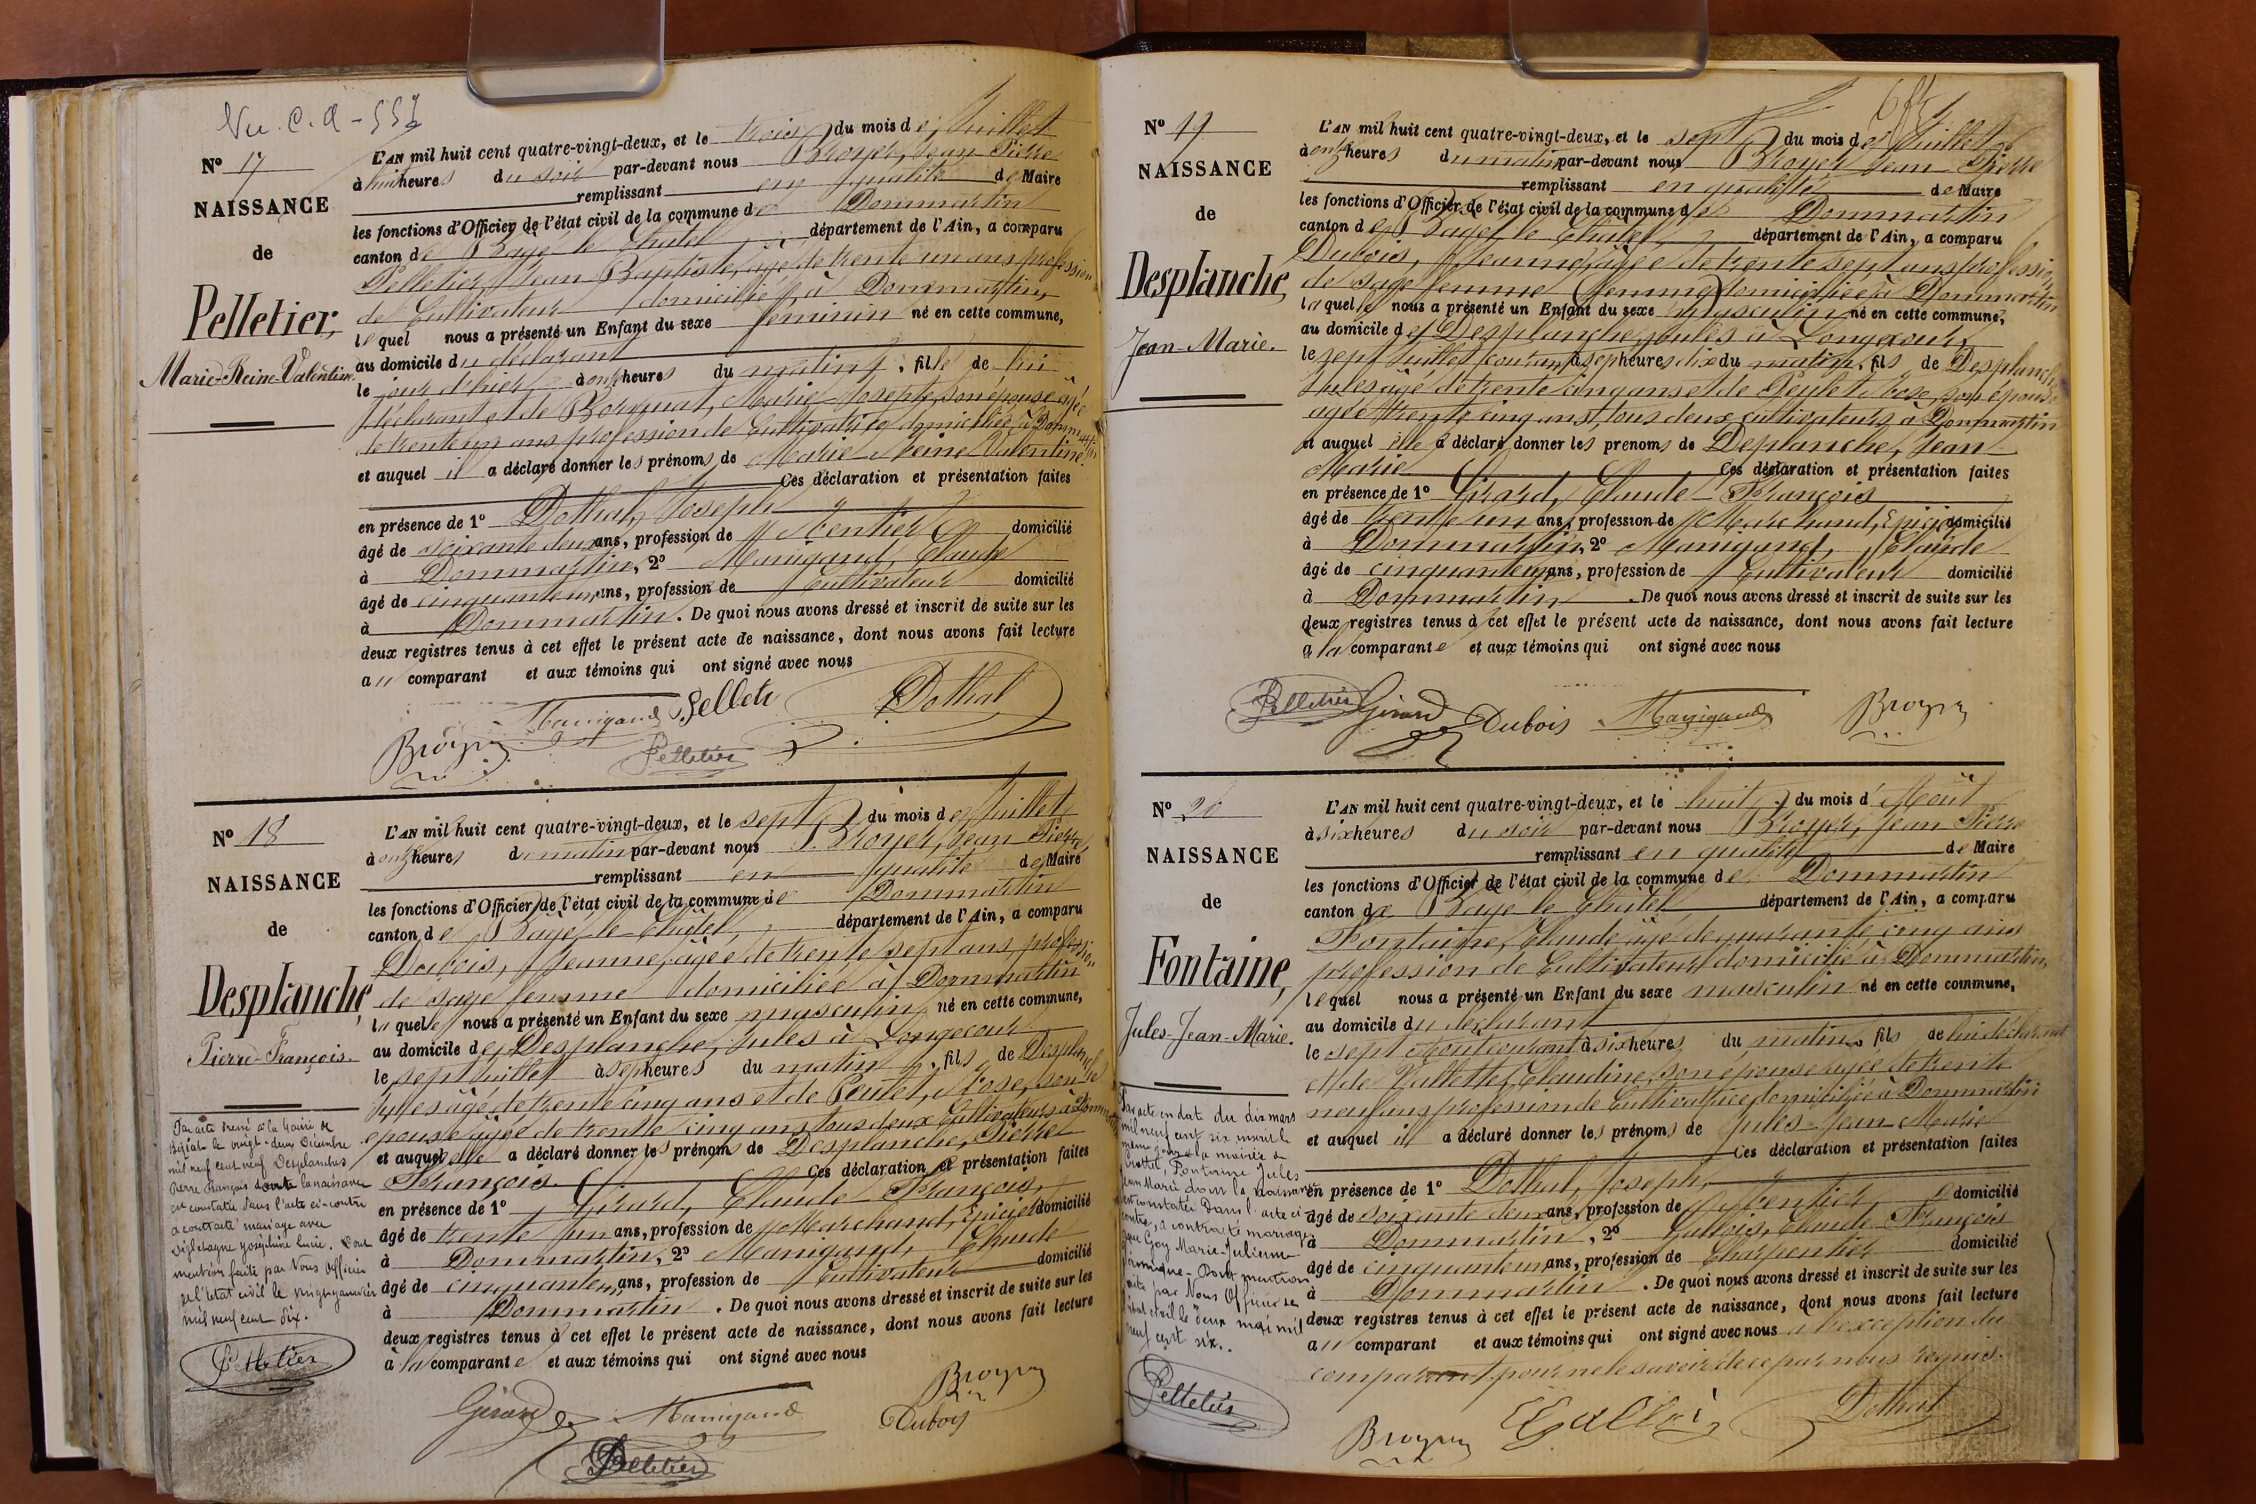 Nº 17
NAISSANCE
de
Pelletier,
Marie-Reine-Valentine.
L'AN mil huit cent quatre-vingt-deux, et le trois du mois de Juillet
à huit heures du soir par-devant nous Broyer, Jean Pierre
remplissant en qualité de Maire
les fonctions d'Officier de l'état civil de la commune de Dommartin
canton de Bagé-le-Châtel département de l'Ain, a comparu
Pelletier, Jean Baptiste, âgé de trente un ans profession
de Cultivateur domicilié à Dommartin,
lequel nous a présenté un Enfant du sexe féminin né en cette commune,
au domicile du déclarant
le jour d'hier à onze heures du matin, fille de lui
déclarant et de Marie Josephe, son épouse âgée
de trente un ans profession de Cultivatrice domiciliée à Dommartin
et auquel il a déclaré donner les prénoms de Marie Reine Valentine.
Ces déclaration et présentation faites
en présence de 1º Dothal, Joseph
âgé de soixante deux ans, profession de Rentier domicilié
à Dommartin, 2º Manigand, Claude
âgé de cinquante un ans, profession de Cultivateur domicilié
à Dommartin. De quoi nous avons dressé et inscrit de suite sur les
deux registres tenus à cet effet le présent acte de naissance, dont nous avons fait lecture
au comparant et aux témoins qui ont signé avec nous
Manigand Dothal
Broyer Pelletier
Nº 18
NAISSANCE
de
Desplanche,
Pierre-François.
L'AN mil huit cent quatre-vingt-deux, et le sept du mois de Juillet
à onze heures du matin par-devant nous Broyer, Jean Pierre
remplissant en qualité de Maire
les fonctions d'Officier de l'état civil de la commune de Dommartin
canton de Bagé-le-Châtel, département de l'Ain, a comparu
Dubois, Jeanne, âgée de trente sept ans, profession
de sage femme domiciliée à Dommartin
laquelle nous a présenté un Enfant du sexe masculin né en cette commune,
au domicile de Desplanche, Jules à Longecour
le sept Juillet à sept heures du matin, fils de Desplanche
Jules âgé de trente cinq ans et de Peulet, Rose, son
épouse âgée de trente cinq ans tous deux Cultivateurs à Dommartin
et auquel elle a déclaré donner les prénoms de Desplanche, Pierre
François. Ces déclaration et présentation faites
en présence de 1º Girard, Claude François,
âgé de trente un ans, profession de Marchand, Epicier domicilié
à Dommartin, 2º Manigand, Claude
âgé de cinquante un ans, profession de Cultivateur domicilié
à Dommartin. De quoi nous avons dressé et inscrit de suite sur les
deux registres tenus à cet effet le présent acte de naissance, dont nous avons fait lecture
à la comparante et aux témoins qui ont signé avec nous
Girard Manigand Broyer
Dubois
Pelletier
Par acte dressé à la Mairie de
le vingt-deux Décembre
mil neuf cent neuf Desplanches
Pierre François dont la naissance
est constatée dans l'acte ci-contre
a contracté mariage avec
Joséphine Lucie. Dont
mention faite par Nous Officier
de l'état civil le vingt janvier
mil neuf cent dix.
Pelletier
Nº 19
NAISSANCE
de
Desplanche,
Jean-Marie.
L'AN mil huit cent quatre-vingt-deux, et le sept du mois de Juillet
à onze heures du matin par-devant nous Broyer Jean Pierre
remplissant en qualité de Maire
les fonctions d'Officier de l'état civil de la commune de Dommartin
canton de Bagé le Châtel, département de l'Ain, a comparu
Dubois, Jeanne, âgée de trente sept ans profession
de sage femme domiciliée à Dommartin
laquelle nous a présenté un Enfant du sexe masculin né en cette commune,
au domicile de Desplanche, Jules à Longecour,
le sept Juillet courant à sept heures dix du matin, fils de Desplanche
Jules âgé de trente cinq ans et de Peulet Rose, son épouse
âgée trente cinq ans, tous deux cultivateurs à Dommartin
et auquel elle a déclaré donner les prenoms de Deplanche, Jean
Marie Ces déclaration et présentation faites
en présence de 1º Girard, Claude-François
âgé de trente un ans, profession de Marchand, Epicier domicilié
à Dommartin, 2º Manigand, Claude
âgé de cinquante un ans, profession de Cultivateur domicilié
à Dommartin. De quoi nous avons dressé et inscrit de suite sur les
deux registres tenus à cet effet le présent acte de naissance, dont nous avons fait lecture
à la comparante et aux témoins qui ont signé avec nous
Pelletier Girard Dubois Manigand Broyer
Nº 20
NAISSANCE
de
Fontaine,
Jules-Jean-Marie.
L'AN mil huit cent quatre-vingt-deux, et le huit du mois d'Août
à six heures du soir par-devant nous Broyer, Jean Pierre
remplissant en qualité de Maire
les fonctions d'Officier de l'état civil de la commune de Dommartin
canton de Bagé le Châtel département de l'Ain, a comparu
Fontaine, Claude âgé de quarante cinq ans
profession de Cultivateur domicilié à Dommartin,
lequel nous a présenté un Enfant du sexe masculin né en cette commune,
au domicile du déclarant
le sept Août courant à six heures du matin, fils de lui déclarant
et de Claudine, son épouse âgée de trente
neuf ans profession de Cultivatrice domiciliée à Dommartin
et auquel il a déclaré donner les prénoms de Jules-Jean Marie
Ces déclaration et présentation faites
en présence de 1º Dothal, Joseph,
âgé de soixante deux ans, profession de Rentier domicilié
à Dommartin, 2º Gallois, Claude François
âgé de cinquante un ans, profession de Charpentier domicilié
à Dommartin. De quoi nous avons dressé et inscrit de suite sur les
deux registres tenus à cet effet le présent acte de naissance, dont nous avons fait lecture
au comparant et aux témoins qui ont signé avec nous à l'exception du
comparant pour ne le savoir de ce par nous requis.
Broyer Gallois Dothal
Par acte en date du dix mars
mil neuf cent six
même jour à la mairie de
Crottet, Fontaine Jules
Jean Marie dont la naissance
est constatée dans l'acte ci-
contre, a contracté mariage
avec Goy Marie-Julienne
Dont mention
faite par Nous Officier de
l'état civil le deux mai mil
neuf cent six.
Pelletier